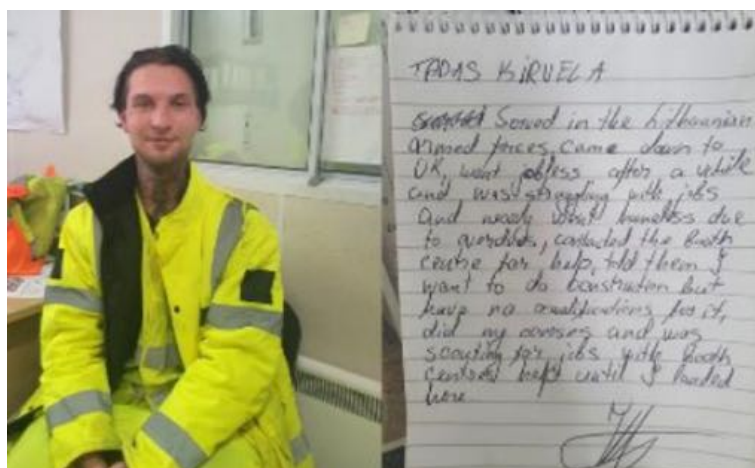 TADAS KIRVELA
Served in the Lithuanian
armed forces, came down to
UK, went jobless after a vehile
and was struggling with jobs
and nearly went homeless due
to overdues, contacted the Booth
centre for help, told them I
want to do construction but
have no qualifications for it,
did my courses and was
scouting for jobs with Booth
centres help until I landed
here